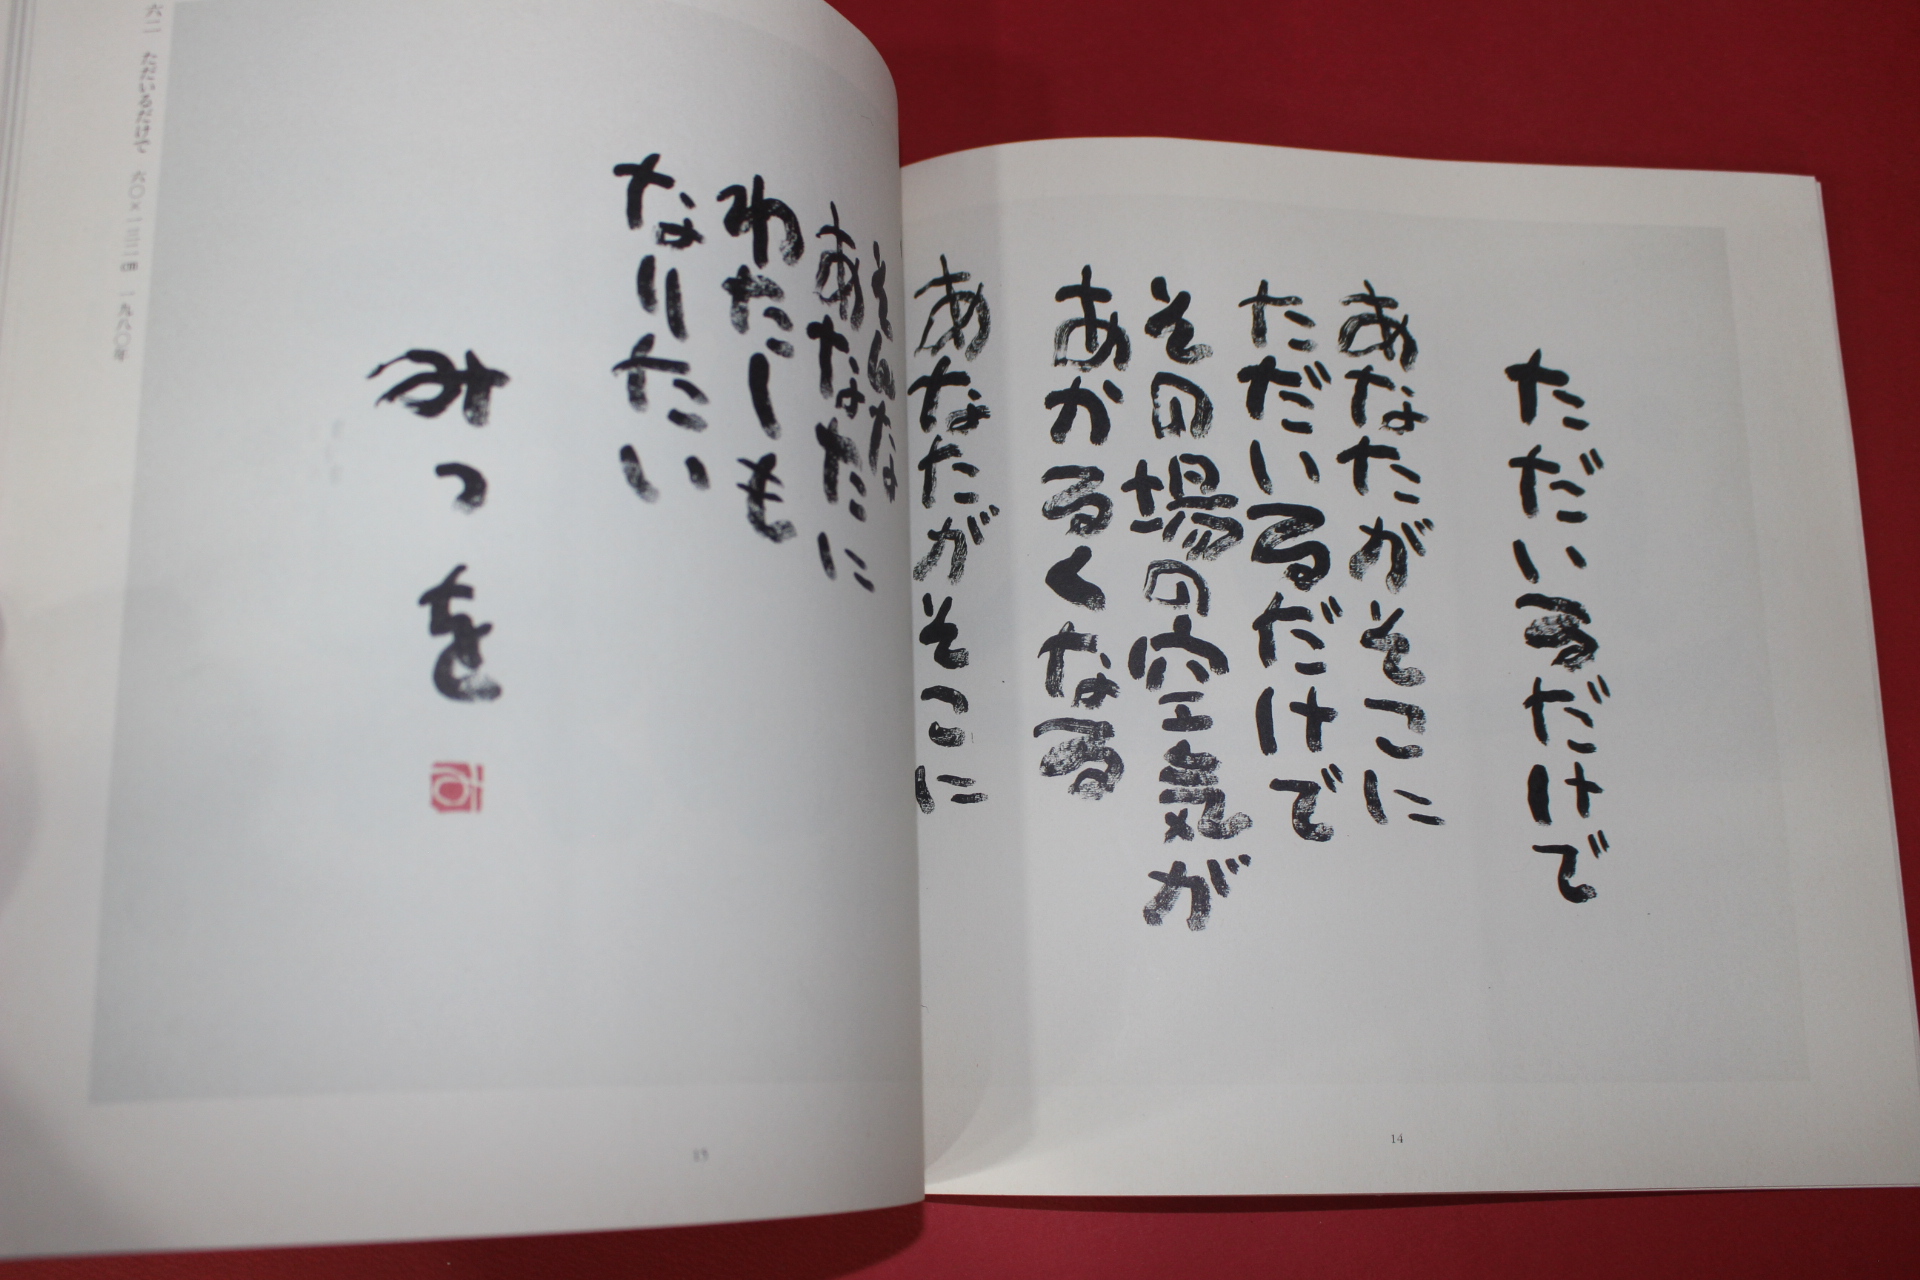 ただいるだけで
あなたがそこに
ただいるだけで
その場の空気が
あかるくなる
あなたがそこに
そんな
あなたに
わたしも
なりたい
みつを
六二 ただいるだけで 六〇×一三二cm 一九八〇年
14
15